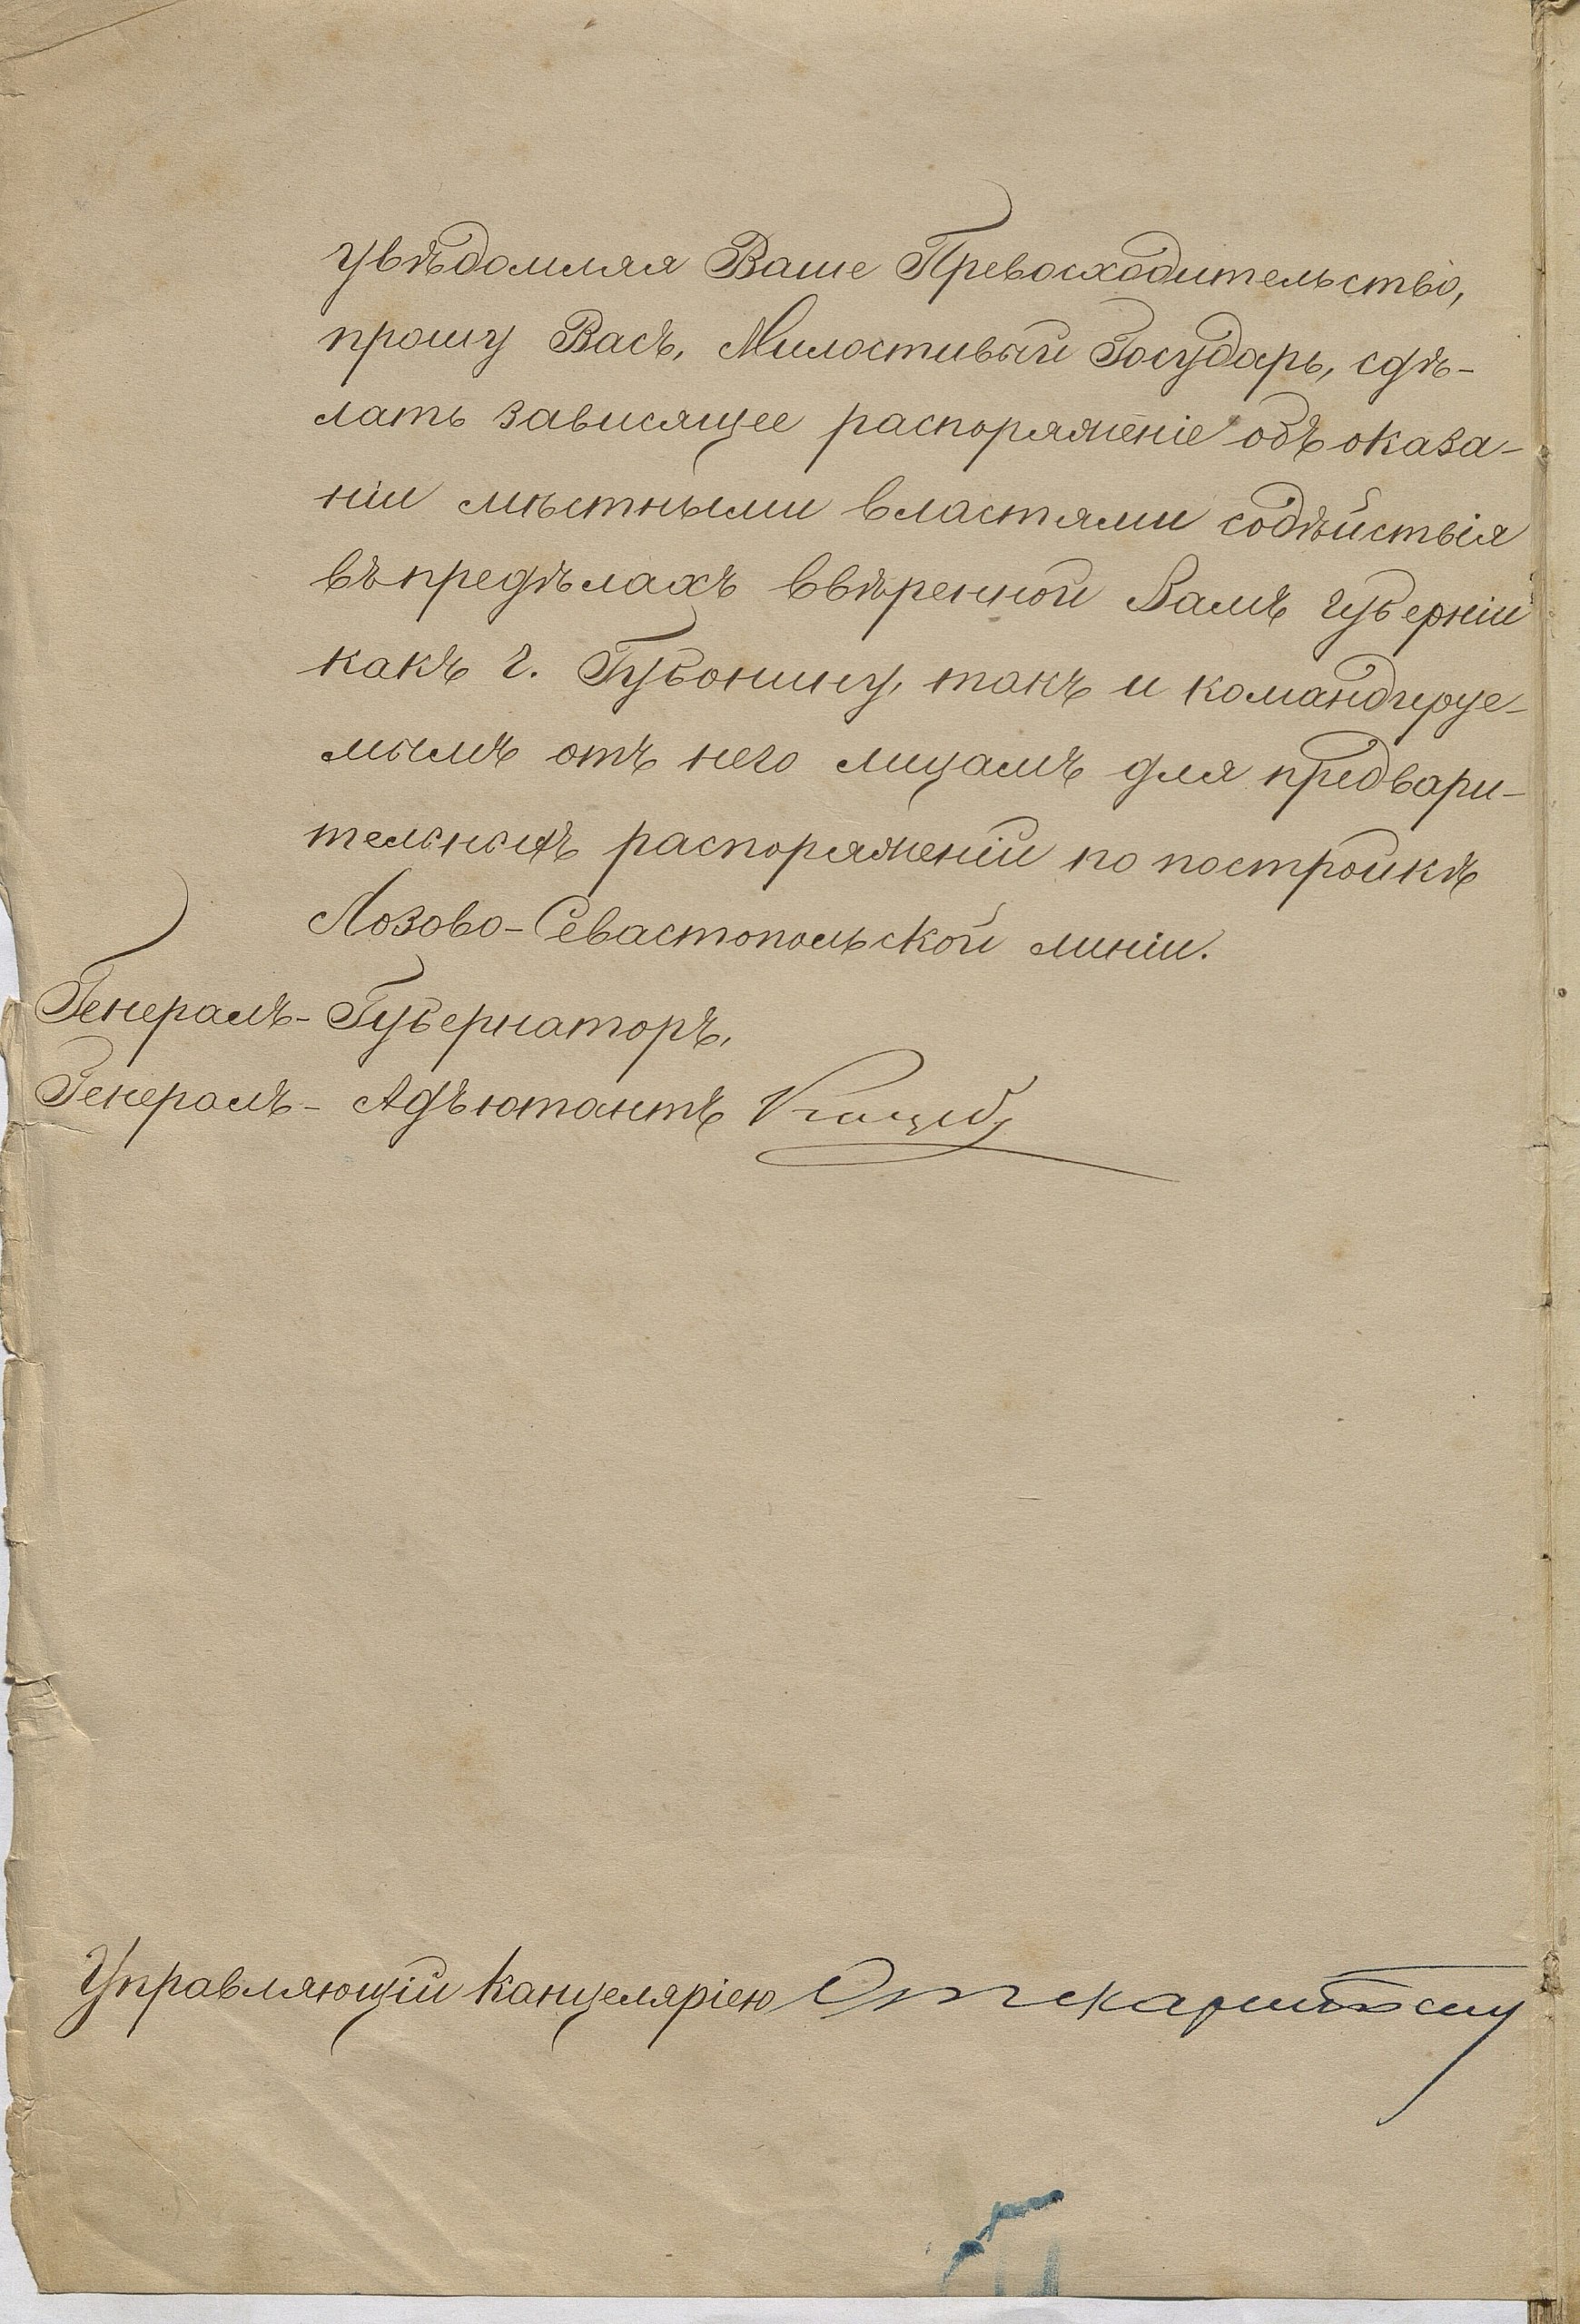 увѣдомляя Ваше Превосходительство,
прошу Васъ, Милостивый Государь, сдѣ-
лать зависящее распоряженіе объ оказа-
ніи мѣстными властями содѣйствія
въ предѣлахъ ввѣренной Вамъ губерніи
какъ г. Губонину, такъ и командируе-
мымъ отъ него лицамъ для предвари-
тельныхъ распоряженій по постройкѣ
Лозово-Севастопольской линіи.
Генералъ-Губернаторъ,
Генералъ-Адъютантъ Коцебу
Управляющій Канцеляріею